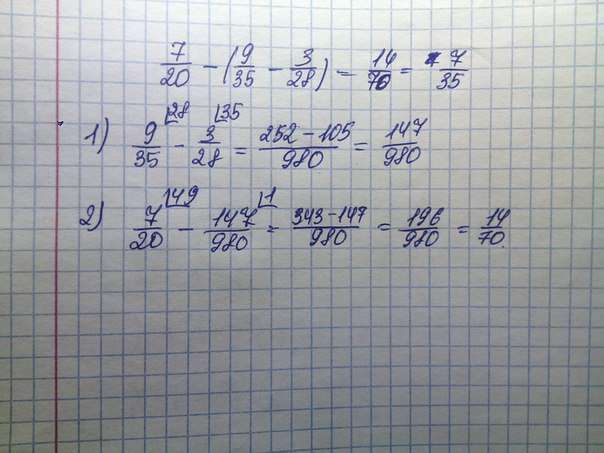 7/20 - (9/35 - 3/28) = 14/70 = 7/35
1) 9/35 ⌊28 - 3/28 ⌊35 = 252-105/980 = 147/980
2) 7/20 ⌊49 - 147/980 ⌊1 = 343-147/980 = 196/980 = 14/70.